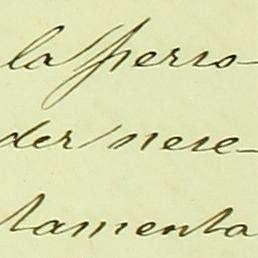 la perso-
der nese-
tamenta